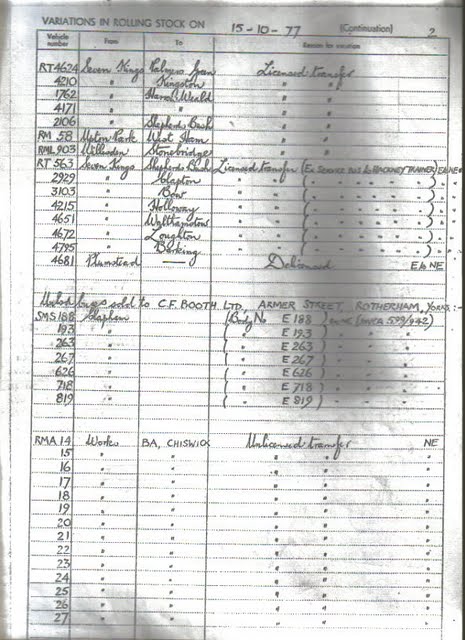 VARIATIONS IN ROLLING STOCK ON 15-10-77 (Continuation) 2
Vehicle number From To Reason for variation
RT 4624 Seven Kings Palmers Green Licensed transfer
4210 " Kingston " "
1762 " Harrow Weald " "
4171 " " " "
2106 " Shepherds Bush " "
RM 58 Upton Park West Ham " "
RML 903 Willesden Stonebridge " "
RT 563 Seven Kings Shepherds Bush Licensed transfer (Ex SERVICE BUS to HACKNEY TRAINER)
2929 " Clapton " " ( " " " " )
3103 " Bow " " ( " " " " )
4215 " Holloway " " ( " " " " )
4651 " Walthamstow " " ( " " " " )
4672 " Loughton " " ( " " " " )
4795 " Barking " " ( " " " " )
4681 Plumstead — Delicensed E to NE
buses sold to C.F. BOOTH LTD., ARMER STREET, ROTHERHAM, YORKS :-
SMS 188 Clapham (Body No E 188)
193 " ( " E 193 ) " "
263 " ( " E 263 ) " "
267 " ( " E 267 ) " "
626 " ( " E 626 ) " "
718 " ( " E 718 ) " "
819 " ( " E 819 ) " "
RMA 14 Works BA, CHISWICK Unlicensed transfer NE
15 " " " " "
16 " " " " "
17 " " " " "
18 " " " " "
19 " " " " "
20 " " " " "
21 " " " " "
22 " " " " "
23 " " " " "
24 " " " " "
25 " " " " "
26 " " " " "
27 " " " " "